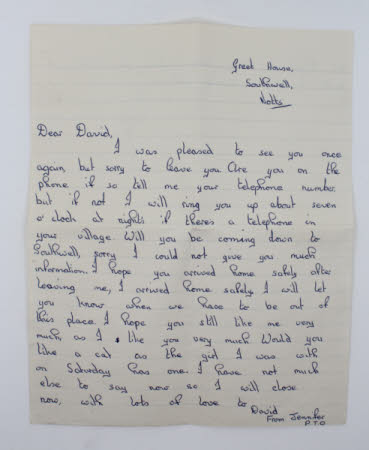 Greet House,
Southwell,
Notts
Dear David,
I was pleased to see you once
again, but sorry to leave you. Are you on the
phone if so tell me your telephone number
but if not I will ring you up about seven
o'clock at nights if theres a telephone in
your village. Will you be coming down to
Southwell, sorry I could not give you much
information. I hope you arrived home safely after
leaving me, I arrived home safely. I will let
you know when we have to be out of
this place. I hope you still like me very
much, as I like you very much. Would you
like a cat as the girl I was with
on Saturday has one. I have not much
else to say now so I will close
now, with lots of love to
David
From Jennifer
P.T.O